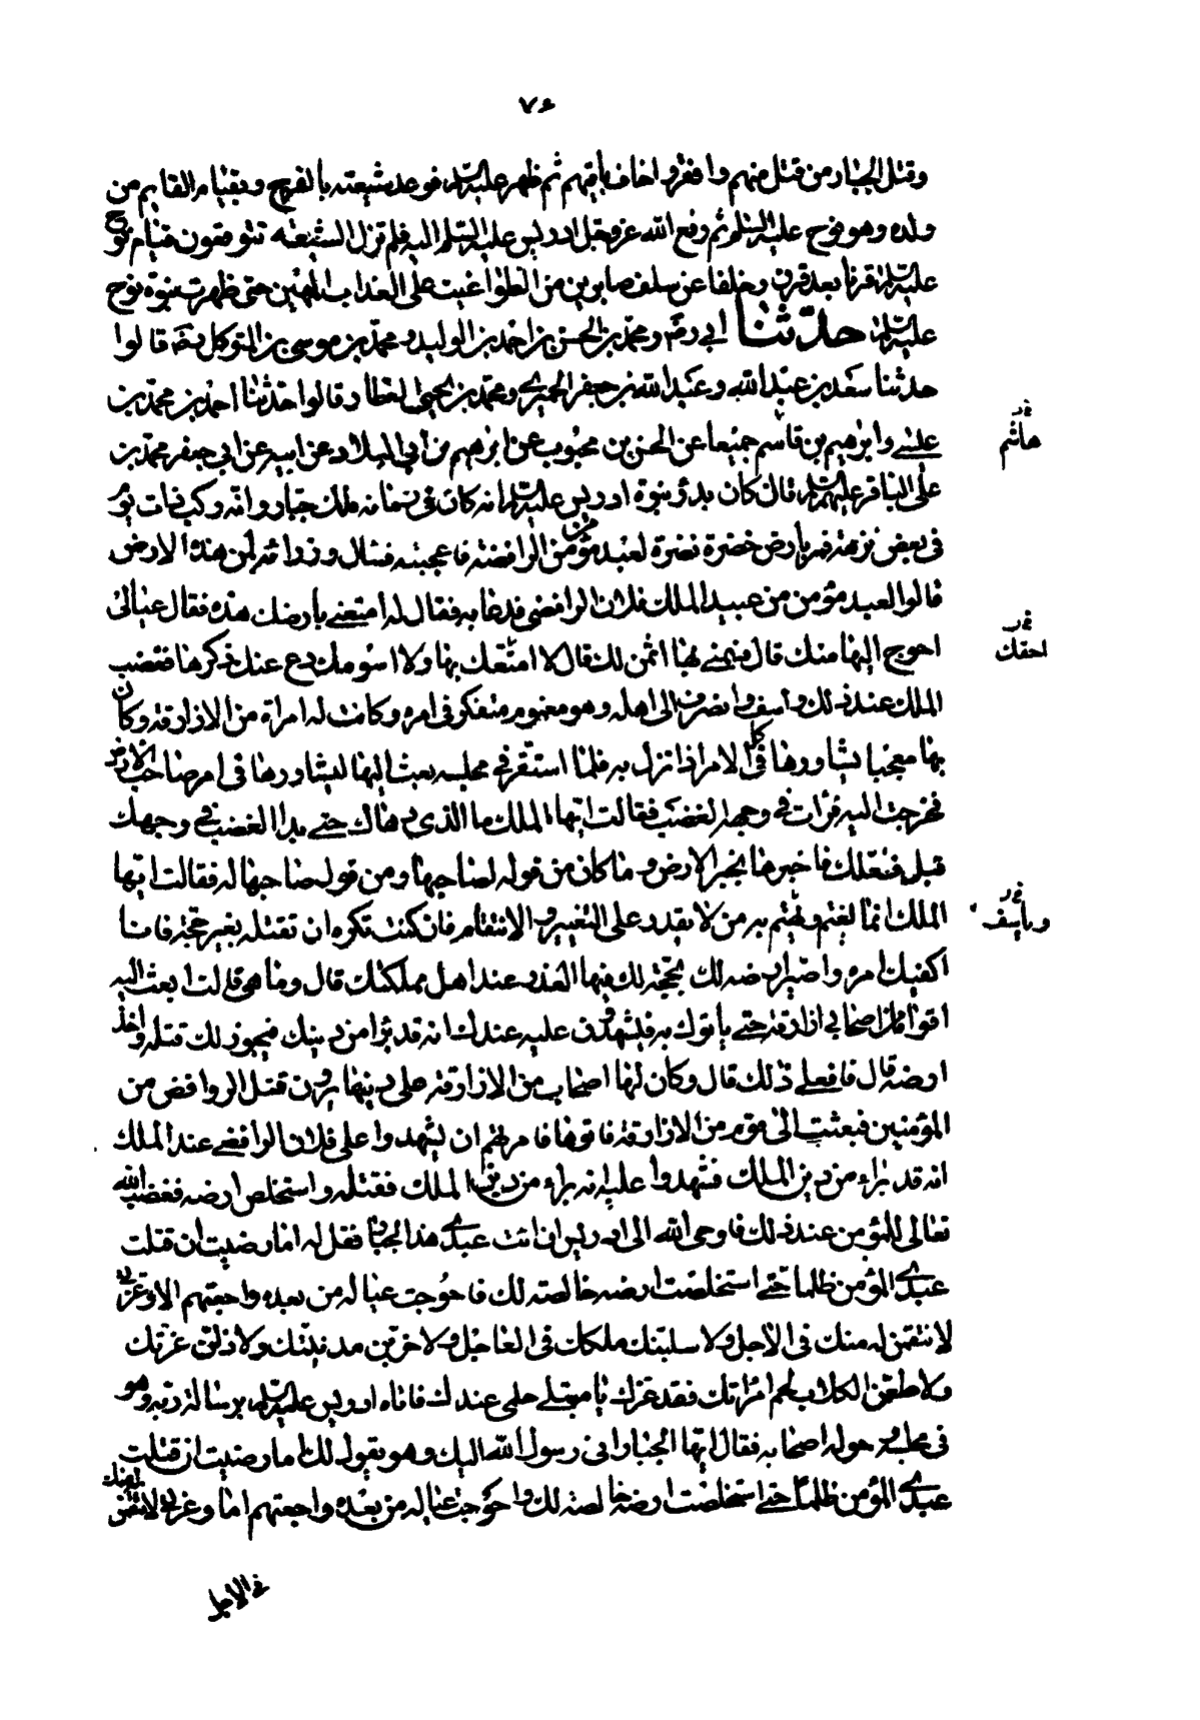 ٧۶
وقتل الجبار من قتل منهم وافقر واخاف باقيهم ثم ظهر عليه السلم فوعد شيعته بالفرج وبقيام القايم من
ولده وهو نوح عليه السلم ثم رفع الله عز وجل ادريس عليه السلم اليه فلم تزل الشيعة تتوقعون قيام نوح
عليه السلم قرنا بعد قرن وخلفا عن سلف صابرين من الطواغيت على العذاب المهين حتى ظهرت نبوة نوح
عليه السلم حدثنا ابي رضه ومحمد بن الحسن بن احمد بن الوليد ومحمد بن موسى بن المتوكل رضه قالوا
حدثنا سعد بن عبد الله وعبد الله بن جعفر الحميري ومحمد بن يحيى العطار قالوا حدثنا احمد بن محمد بن
عيسى وابرهيم بن قاسم جميعا عن الحسن بن محبوب عن ابرهيم بن ابي البلاد عن ابيه عن ابي جعفر محمد بن
هاشم
على الباقر عليهما السلم قال كان بدؤ نبوة ادريس عليه السلم انه كان في زمانه ملك جبار وانه ركب ذات يوم
في بعض نزهته فمر بارض خضرة نضرة لعبد مؤمن من الرافضة فاعجبته فسال وزرائه لمن هذه الارض
قالوا لعبد مؤمن من عبيد الملك فلان الرافضي فدعا به فقال له امتعنى بارضك هذه فقال عيالى
احوج اليها منك قال فسمنى بها اثمن لك قال لا امتعك بها ولا اسومك دع عنك ذكرها فغضب
احقك
الملك عند ذلك واسف وانصرف الى اهله وهو مغموم متفكر في امره وكانت له امراة من الازارقة وكان
بها معجبا يشاورها في كل الامر اذا نزل به فلما استقر في مجلسه بعث اليها ليشاورها في امر صاحب الارض
فخرجت اليه فرات في وجهه الغضب فقالت ايها الملك ما الذي دهاك حتى بدا الغضب في وجهك
قبل فعلك فاخبرها بخبر الارض وما كان من قوله لصاحبها ومن قول صاحبها له فقالت ايها
الملك انما يغتم ويهتم به من لا يقدر على التغيير والانتقام فان كنت تكره ان تقتله بغير حجة فانا
وياسف
اكفيك امره واصير ارضه لك بحجة لك فيها العذر عند اهل مملكتك قال وما هي قالت ابعث اليه
اقواما من اصحابي ازارقة حتى ياتوك به فيشهدون عليه عندك انه قد برا من دينك فيجوز لك قتله واخذ
ارضه قال فافعلى ذلك قال وكان لها اصحاب من الازارقة على دينها يرون قتل الروافض من
المؤمنين فبعثت الى قوم من الازارقة فاتوها فامرتهم ان يشهدوا على فلان الرافضي عند الملك
انه قد براء من دين الملك فشهدوا عليه انه براء من دين الملك فقتله واستخلص ارضه فغضب الله
تعالى للمؤمن عند ذلك فاوحى الله الى ادريس ان ائت عبدى هذا الجبار فقل له اما رضيت ان قتلت
عبدى المؤمن ظلما حتى استخلصت ارضه خالصة لك فاحوجت عياله من بعده واجعتهم الا وعزتي
لانتقمن له منك في الاجل ولا سلبنك ملكك في العاجل ولاخربن مدينتك ولاذلن عزتك
ولاطعمن الكلاب لحم امراتك فقد غرك يا مبتلى حلمى عندك فاتاه ادريس عليه السلم برسالة ربه وهو
في مجلسه وحوله اصحابه فقال ايها الجبار اني رسول الله اليك وهو يقول لك اما رضيت ان قتلت
عبدى المؤمن ظلما حتى استخلصت ارضه خالصة لك واحوجت عياله من بعده واجعتهم اما وعزتي لانتقمن له منك
في الاجل